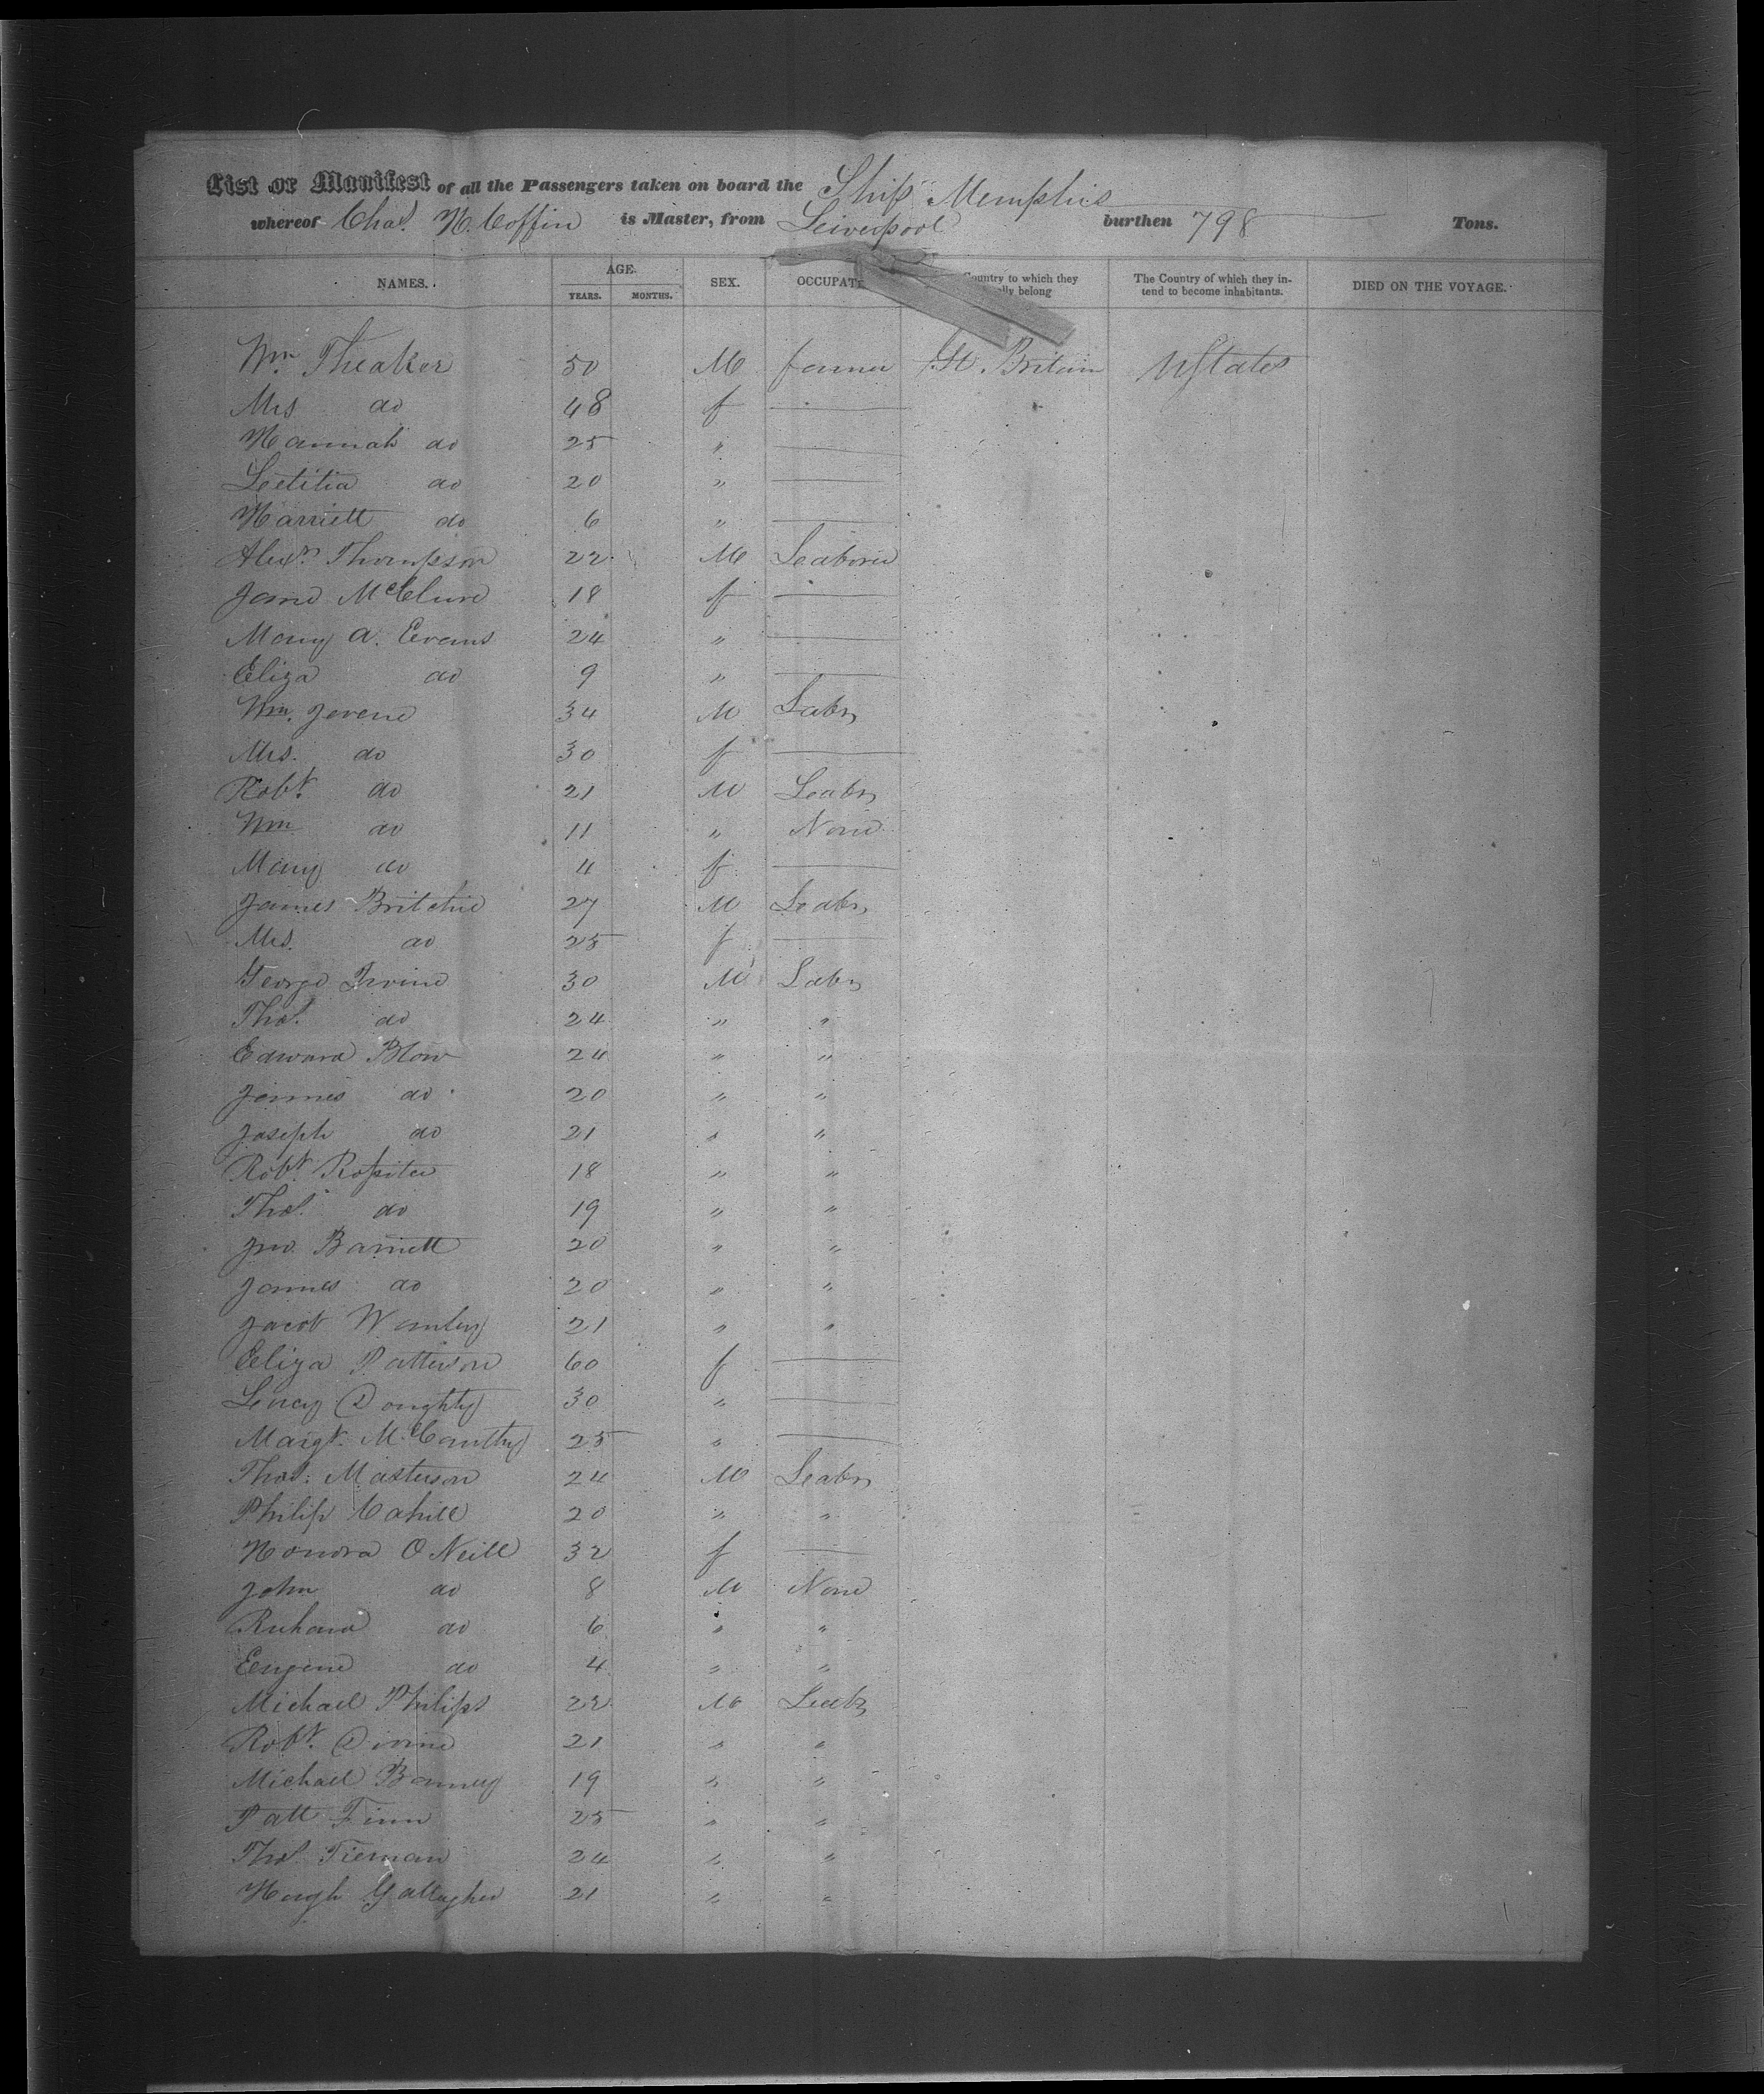 List or Manifest of all the Passengers taken on board the Ship Memphis
whereof Chas. H. Coffin is Master, from Leiverpool burthen 798 Tons.
NAMES. AGE. YEARS. MONTHS. SEX. OCCUPAT Country to which they ally belong The Country of which they intend to become inhabitants. DIED ON THE VOYAGE.
Wm. Theaker 50 M farmer Gt. Britain UStates
Mrs do 48 f
Hannah do 25 "
Letitia do 20 "
Harriett do 6 "
Alexr. Thompson 22 M Leaborer
Jane McClure 18 f
Mary A. Evans 24 "
Eliza do 9 "
Wm. 34 M Labr
Mrs. do 30 f
Robt. do 21 M Leabr
Wm do 11 " None
Mary do 4 f
James Britchie 27 M Leabr
Mrs. do 25 f
George Irvine 30 M Labr
Thos. do 24 " "
Edward Blow 24 " "
James do 20 " "
Joseph do 21 " "
Robt. Rossiter 18 " "
Thos. do 19 " "
Jno. Barnett 20 " "
James do 20 " "
Jacob 21 " "
Eliza Patterson 60 f
Lucy Doughty 30 "
Margt. McCarthy 25 "
Thos. Masterson 24 M Leabr
Philip Cahill 20 " "
Honora O Neill 32 f
John do 8 M None
Richard do 6 " "
Eugene do 4 " "
Michael Philips 22 M Leabr
Robt. Divine 21 " "
Michael 19 " "
Patt Finn 25 " "
Thos. Tiernan 24 " "
Hough Gallagher 21 " "